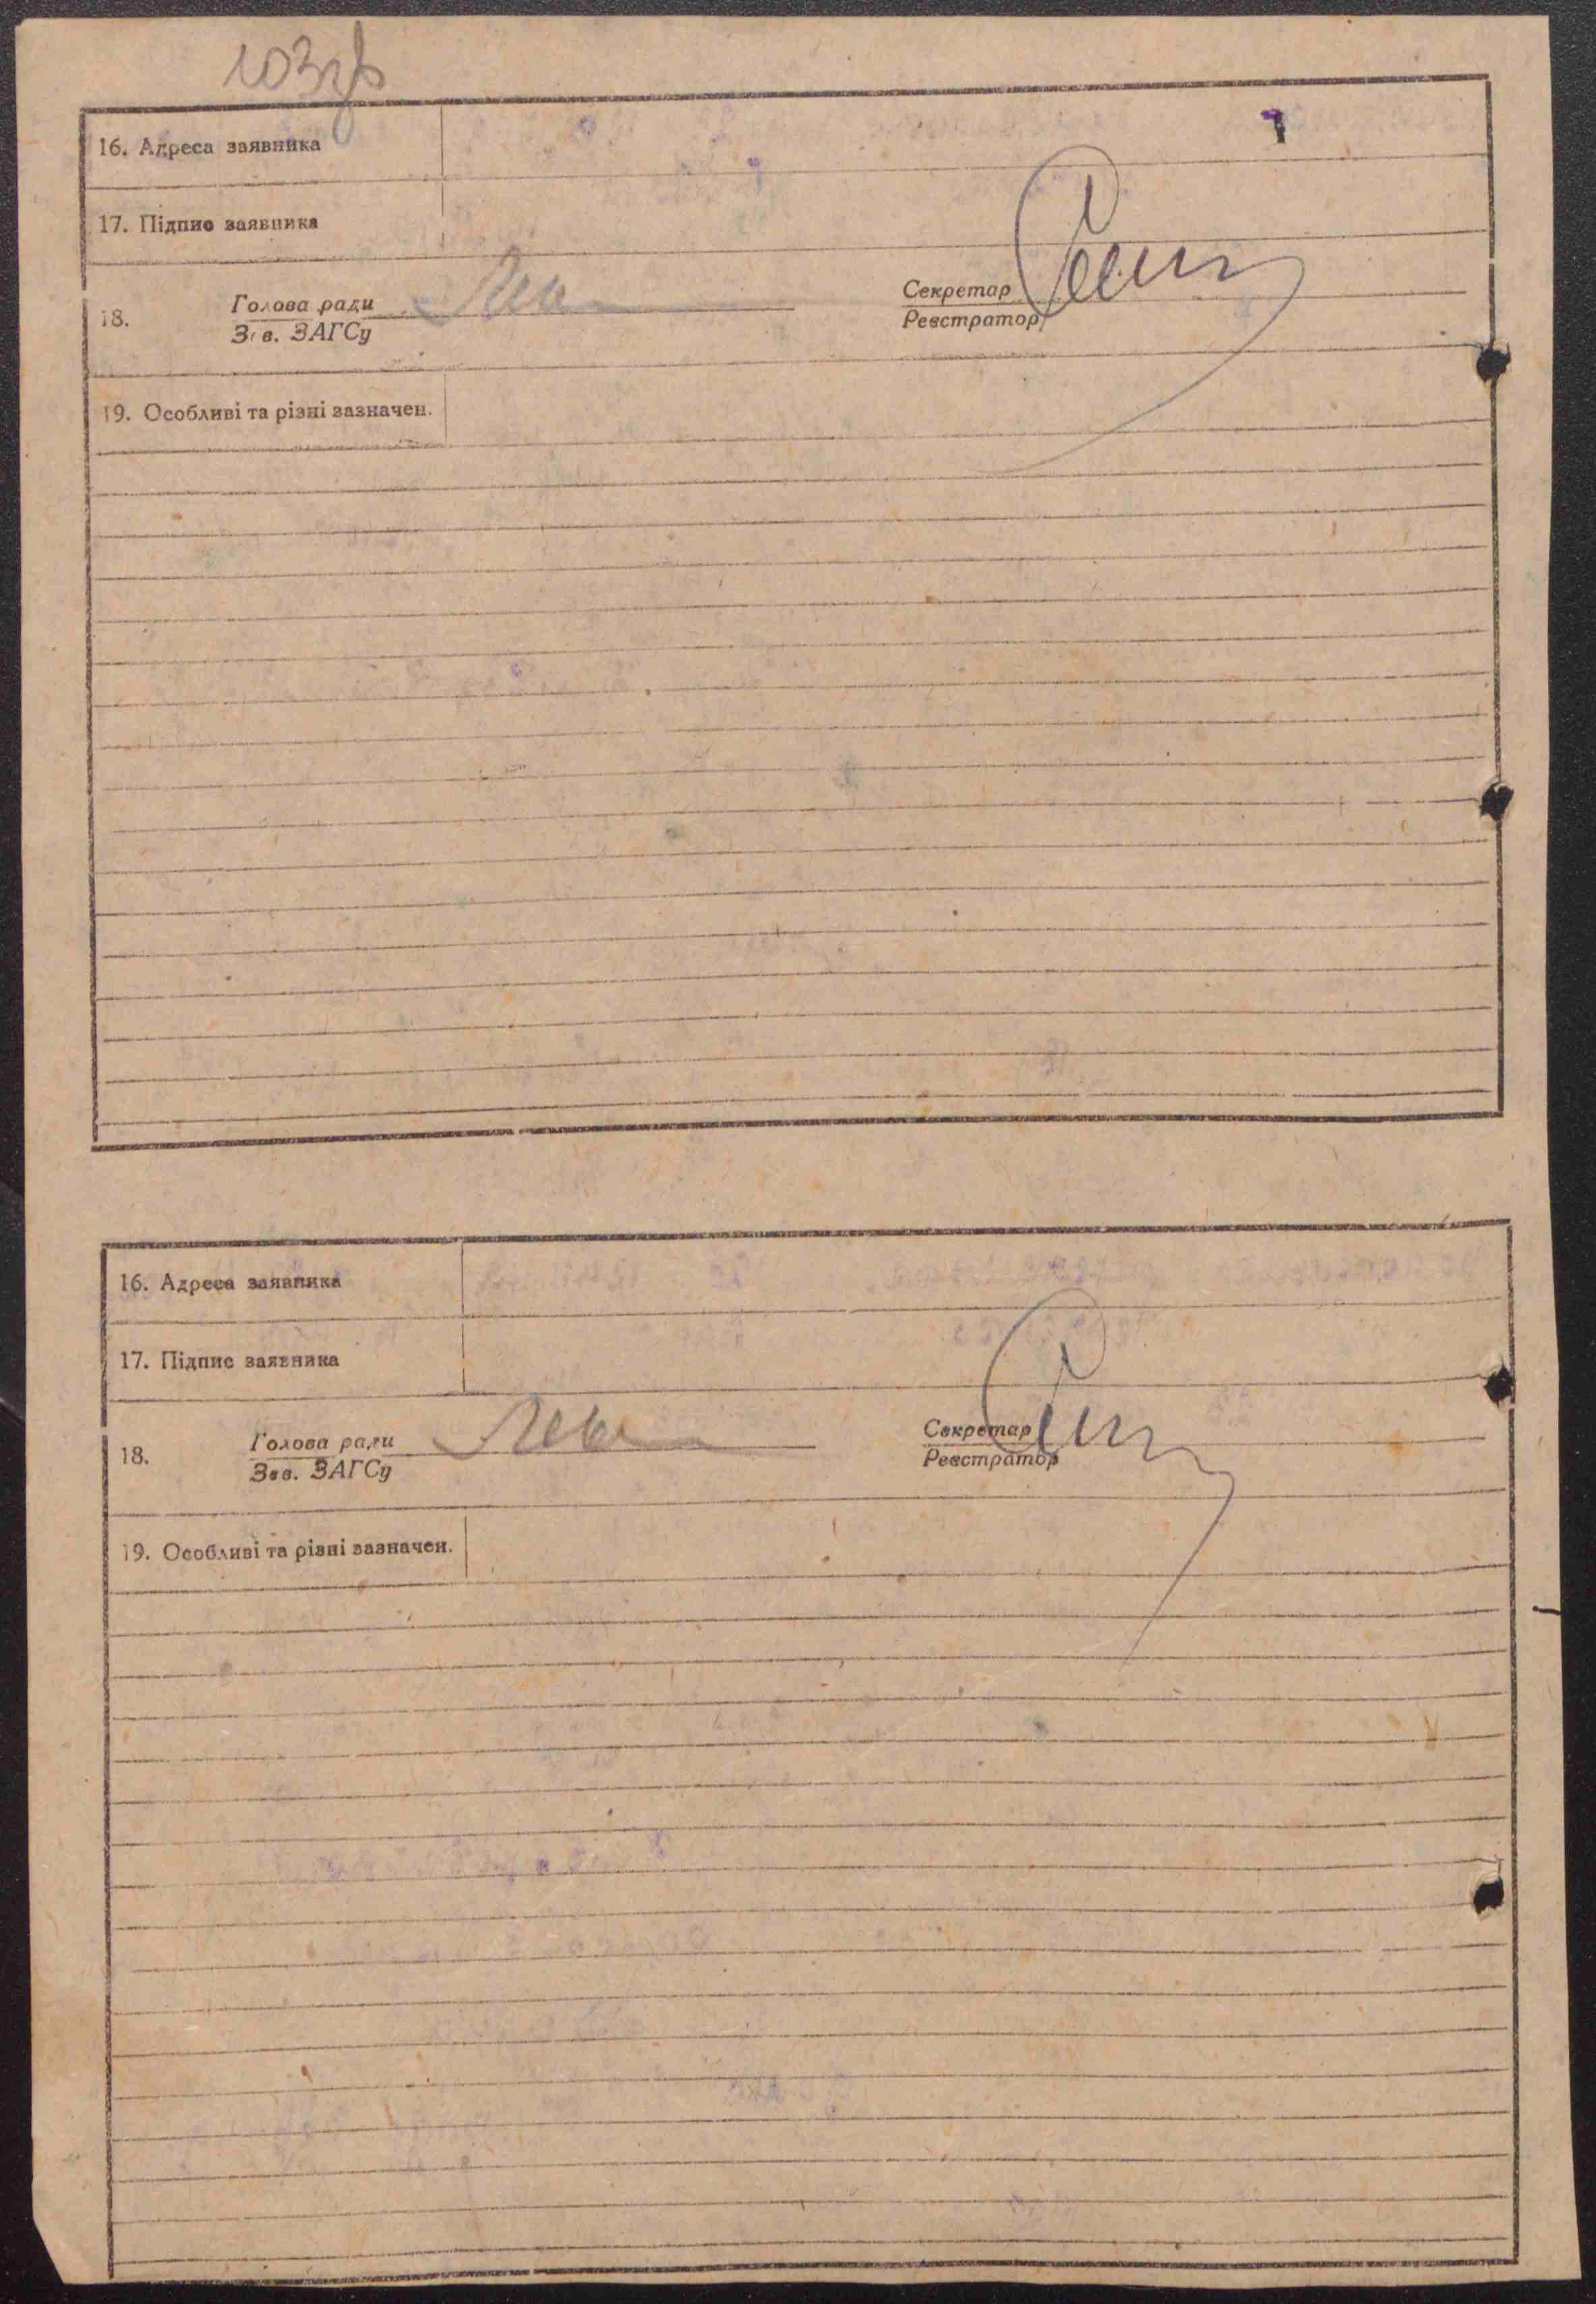 103зв
16. Адреса заявника
17. Підпис заявника
18. Голова ради Секретар
Зав. ЗАГСу Реєстратор
19. Особливі та різні зазначен.
16. Адреса заявника
17. Підпис заявника
18. Голова ради Секретар
Зав. ЗАГСу Реєстратор
19. Особливі та різні зазначен.